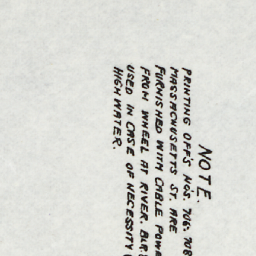 NOTE.
PRINTING OFF'S NO'S. 706: 708
MASSACHUSETTS ST. ARE
FURNISHED WITH CABLE POWE
FROM WHEEL AT RIVER. BLR.
USED IN CASE OF NECESSITY
HIGH WATER.